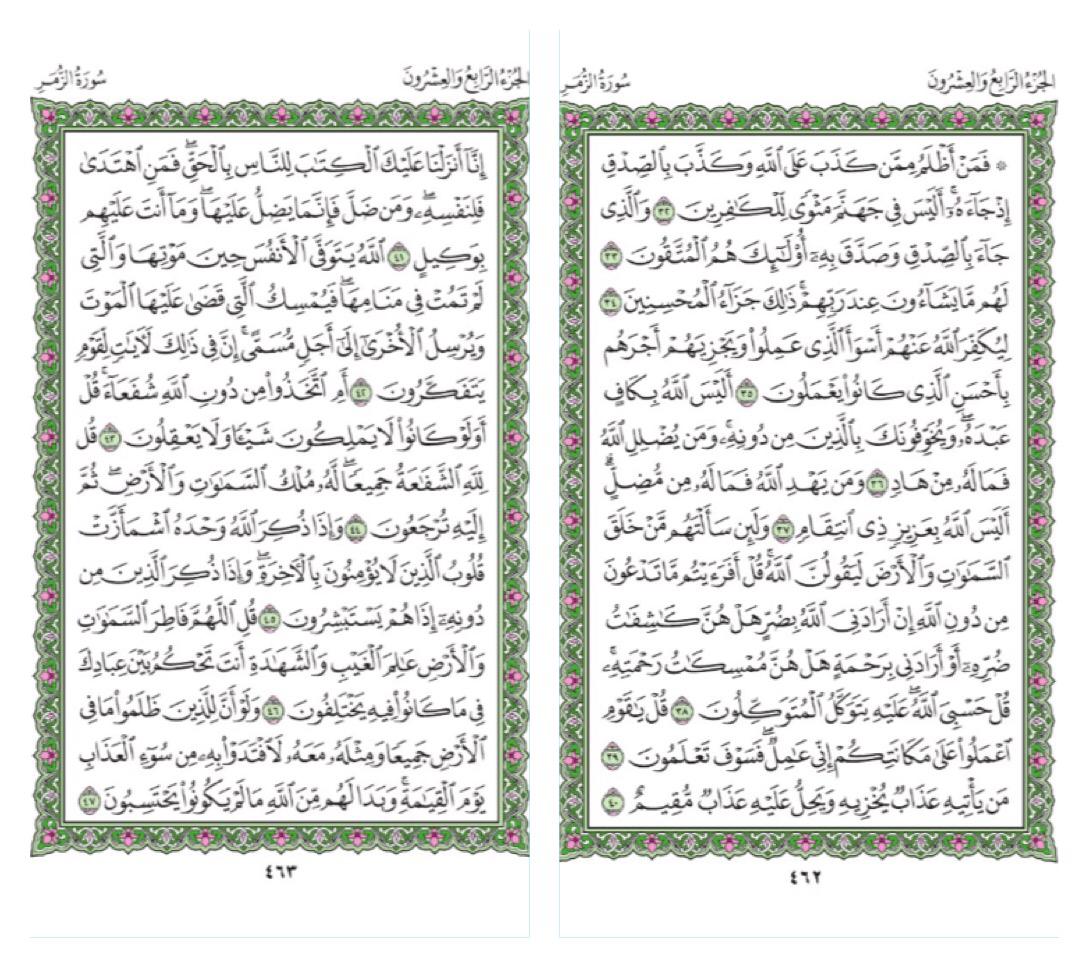 الجزء الرابع والعشرون
سورة الزمر
۞ فَمَنْ أَظْلَمُ مِمَّن كَذَبَ عَلَى ٱللَّهِ وَكَذَّبَ بِٱلصِّدْقِ
إِذْ جَآءَهُۥٓۚ أَلَيْسَ فِى جَهَنَّمَ مَثْوًى لِّلْكَٰفِرِينَ ٣٢ وَٱلَّذِى
جَآءَ بِٱلصِّدْقِ وَصَدَّقَ بِهِۦٓ أُو۟لَٰٓئِكَ هُمُ ٱلْمُتَّقُونَ ٣٣
لَهُم مَّا يَشَآءُونَ عِندَ رَبِّهِمْۚ ذَٰلِكَ جَزَآءُ ٱلْمُحْسِنِينَ ٣٤
لِيُكَفِّرَ ٱللَّهُ عَنْهُمْ أَسْوَأَ ٱلَّذِى عَمِلُوا۟ وَيَجْزِيَهُمْ أَجْرَهُم
بِأَحْسَنِ ٱلَّذِى كَانُوا۟ يَعْمَلُونَ ٣٥ أَلَيْسَ ٱللَّهُ بِكَافٍ
عَبْدَهُۥۖ وَيُخَوِّفُونَكَ بِٱلَّذِينَ مِن دُونِهِۦۚ وَمَن يُضْلِلِ ٱللَّهُ
فَمَا لَهُۥ مِنْ هَادٍ ٣٦ وَمَن يَهْدِ ٱللَّهُ فَمَا لَهُۥ مِن مُّضِلٍّۗ
أَلَيْسَ ٱللَّهُ بِعَزِيزٍ ذِى ٱنتِقَامٍ ٣٧ وَلَئِن سَأَلْتَهُم مَّنْ خَلَقَ
ٱلسَّمَٰوَٰتِ وَٱلْأَرْضَ لَيَقُولُنَّ ٱللَّهُۚ قُلْ أَفَرَءَيْتُم مَّا تَدْعُونَ
مِن دُونِ ٱللَّهِ إِنْ أَرَادَنِىَ ٱللَّهُ بِضُرٍّ هَلْ هُنَّ كَٰشِفَٰتُ
ضُرِّهِۦٓ أَوْ أَرَادَنِى بِرَحْمَةٍ هَلْ هُنَّ مُمْسِكَٰتُ رَحْمَتِهِۦۚ
قُلْ حَسْبِىَ ٱللَّهُۖ عَلَيْهِ يَتَوَكَّلُ ٱلْمُتَوَكِّلُونَ ٣٨ قُلْ يَٰقَوْمِ
ٱعْمَلُوا۟ عَلَىٰ مَكَانَتِكُمْ إِنِّى عَٰمِلٌۖ فَسَوْفَ تَعْلَمُونَ ٣٩
مَن يَأْتِيهِ عَذَابٌ يُخْزِيهِ وَيَحِلُّ عَلَيْهِ عَذَابٌ مُّقِيمٌ ٤٠
٤٦٢
الجزء الرابع والعشرون
سورة الزمر
إِنَّآ أَنزَلْنَا عَلَيْكَ ٱلْكِتَٰبَ لِلنَّاسِ بِٱلْحَقِّۖ فَمَنِ ٱهْتَدَىٰ
فَلِنَفْسِهِۦۖ وَمَن ضَلَّ فَإِنَّمَا يَضِلُّ عَلَيْهَاۖ وَمَآ أَنتَ عَلَيْهِم
بِوَكِيلٍ ٤١ ٱللَّهُ يَتَوَفَّى ٱلْأَنفُسَ حِينَ مَوْتِهَا وَٱلَّتِى
لَمْ تَمُتْ فِى مَنَامِهَاۖ فَيُمْسِكُ ٱلَّتِى قَضَىٰ عَلَيْهَا ٱلْمَوْتَ
وَيُرْسِلُ ٱلْأُخْرَىٰٓ إِلَىٰٓ أَجَلٍ مُّسَمًّىۚ إِنَّ فِى ذَٰلِكَ لَءَايَٰتٍ لِّقَوْمٍ
يَتَفَكَّرُونَ ٤٢ أَمِ ٱتَّخَذُوا۟ مِن دُونِ ٱللَّهِ شُفَعَآءَۚ قُلْ
أَوَلَوْ كَانُوا۟ لَا يَمْلِكُونَ شَيْـًٔا وَلَا يَعْقِلُونَ ٤٣ قُل
لِّلَّهِ ٱلشَّفَٰعَةُ جَمِيعًاۖ لَّهُۥ مُلْكُ ٱلسَّمَٰوَٰتِ وَٱلْأَرْضِۖ ثُمَّ
إِلَيْهِ تُرْجَعُونَ ٤٤ وَإِذَا ذُكِرَ ٱللَّهُ وَحْدَهُ ٱشْمَأَزَّتْ
قُلُوبُ ٱلَّذِينَ لَا يُؤْمِنُونَ بِٱلْءَاخِرَةِۖ وَإِذَا ذُكِرَ ٱلَّذِينَ مِن
دُونِهِۦٓ إِذَا هُمْ يَسْتَبْشِرُونَ ٤٥ قُلِ ٱللَّهُمَّ فَاطِرَ ٱلسَّمَٰوَٰتِ
وَٱلْأَرْضِ عَٰلِمَ ٱلْغَيْبِ وَٱلشَّهَٰدَةِ أَنتَ تَحْكُمُ بَيْنَ عِبَادِكَ
فِى مَا كَانُوا۟ فِيهِ يَخْتَلِفُونَ ٤٦ وَلَوْ أَنَّ لِلَّذِينَ ظَلَمُوا۟ مَا فِى
ٱلْأَرْضِ جَمِيعًا وَمِثْلَهُۥ مَعَهُۥ لَٱفْتَدَوْا۟ بِهِۦ مِن سُوٓءِ ٱلْعَذَابِ
يَوْمَ ٱلْقِيَٰمَةِۚ وَبَدَا لَهُم مِّنَ ٱللَّهِ مَا لَمْ يَكُونُوا۟ يَحْتَسِبُونَ ٤٧
٤٦٣